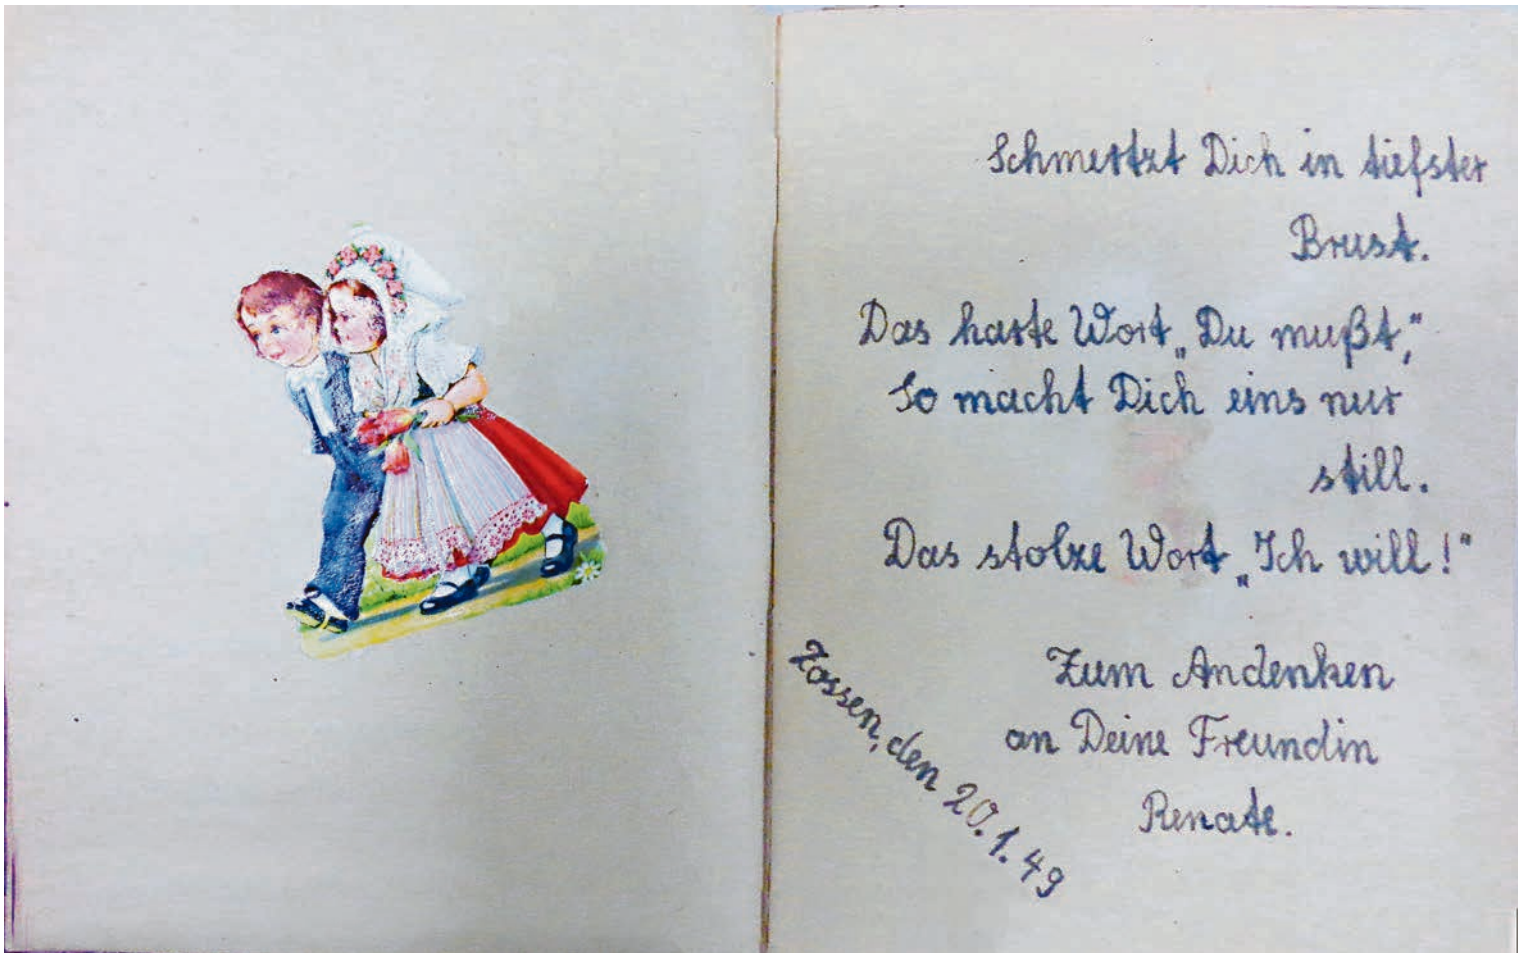 Schmertzt Dich in tiefster
Brust.
Das harte Wort „Du mußt,“
So macht Dich eins nur
still.
Das stolze Wort „Ich will!“
Zum Andenken
an Deine Freundin
Renate.
Zossen, den 20.1.49